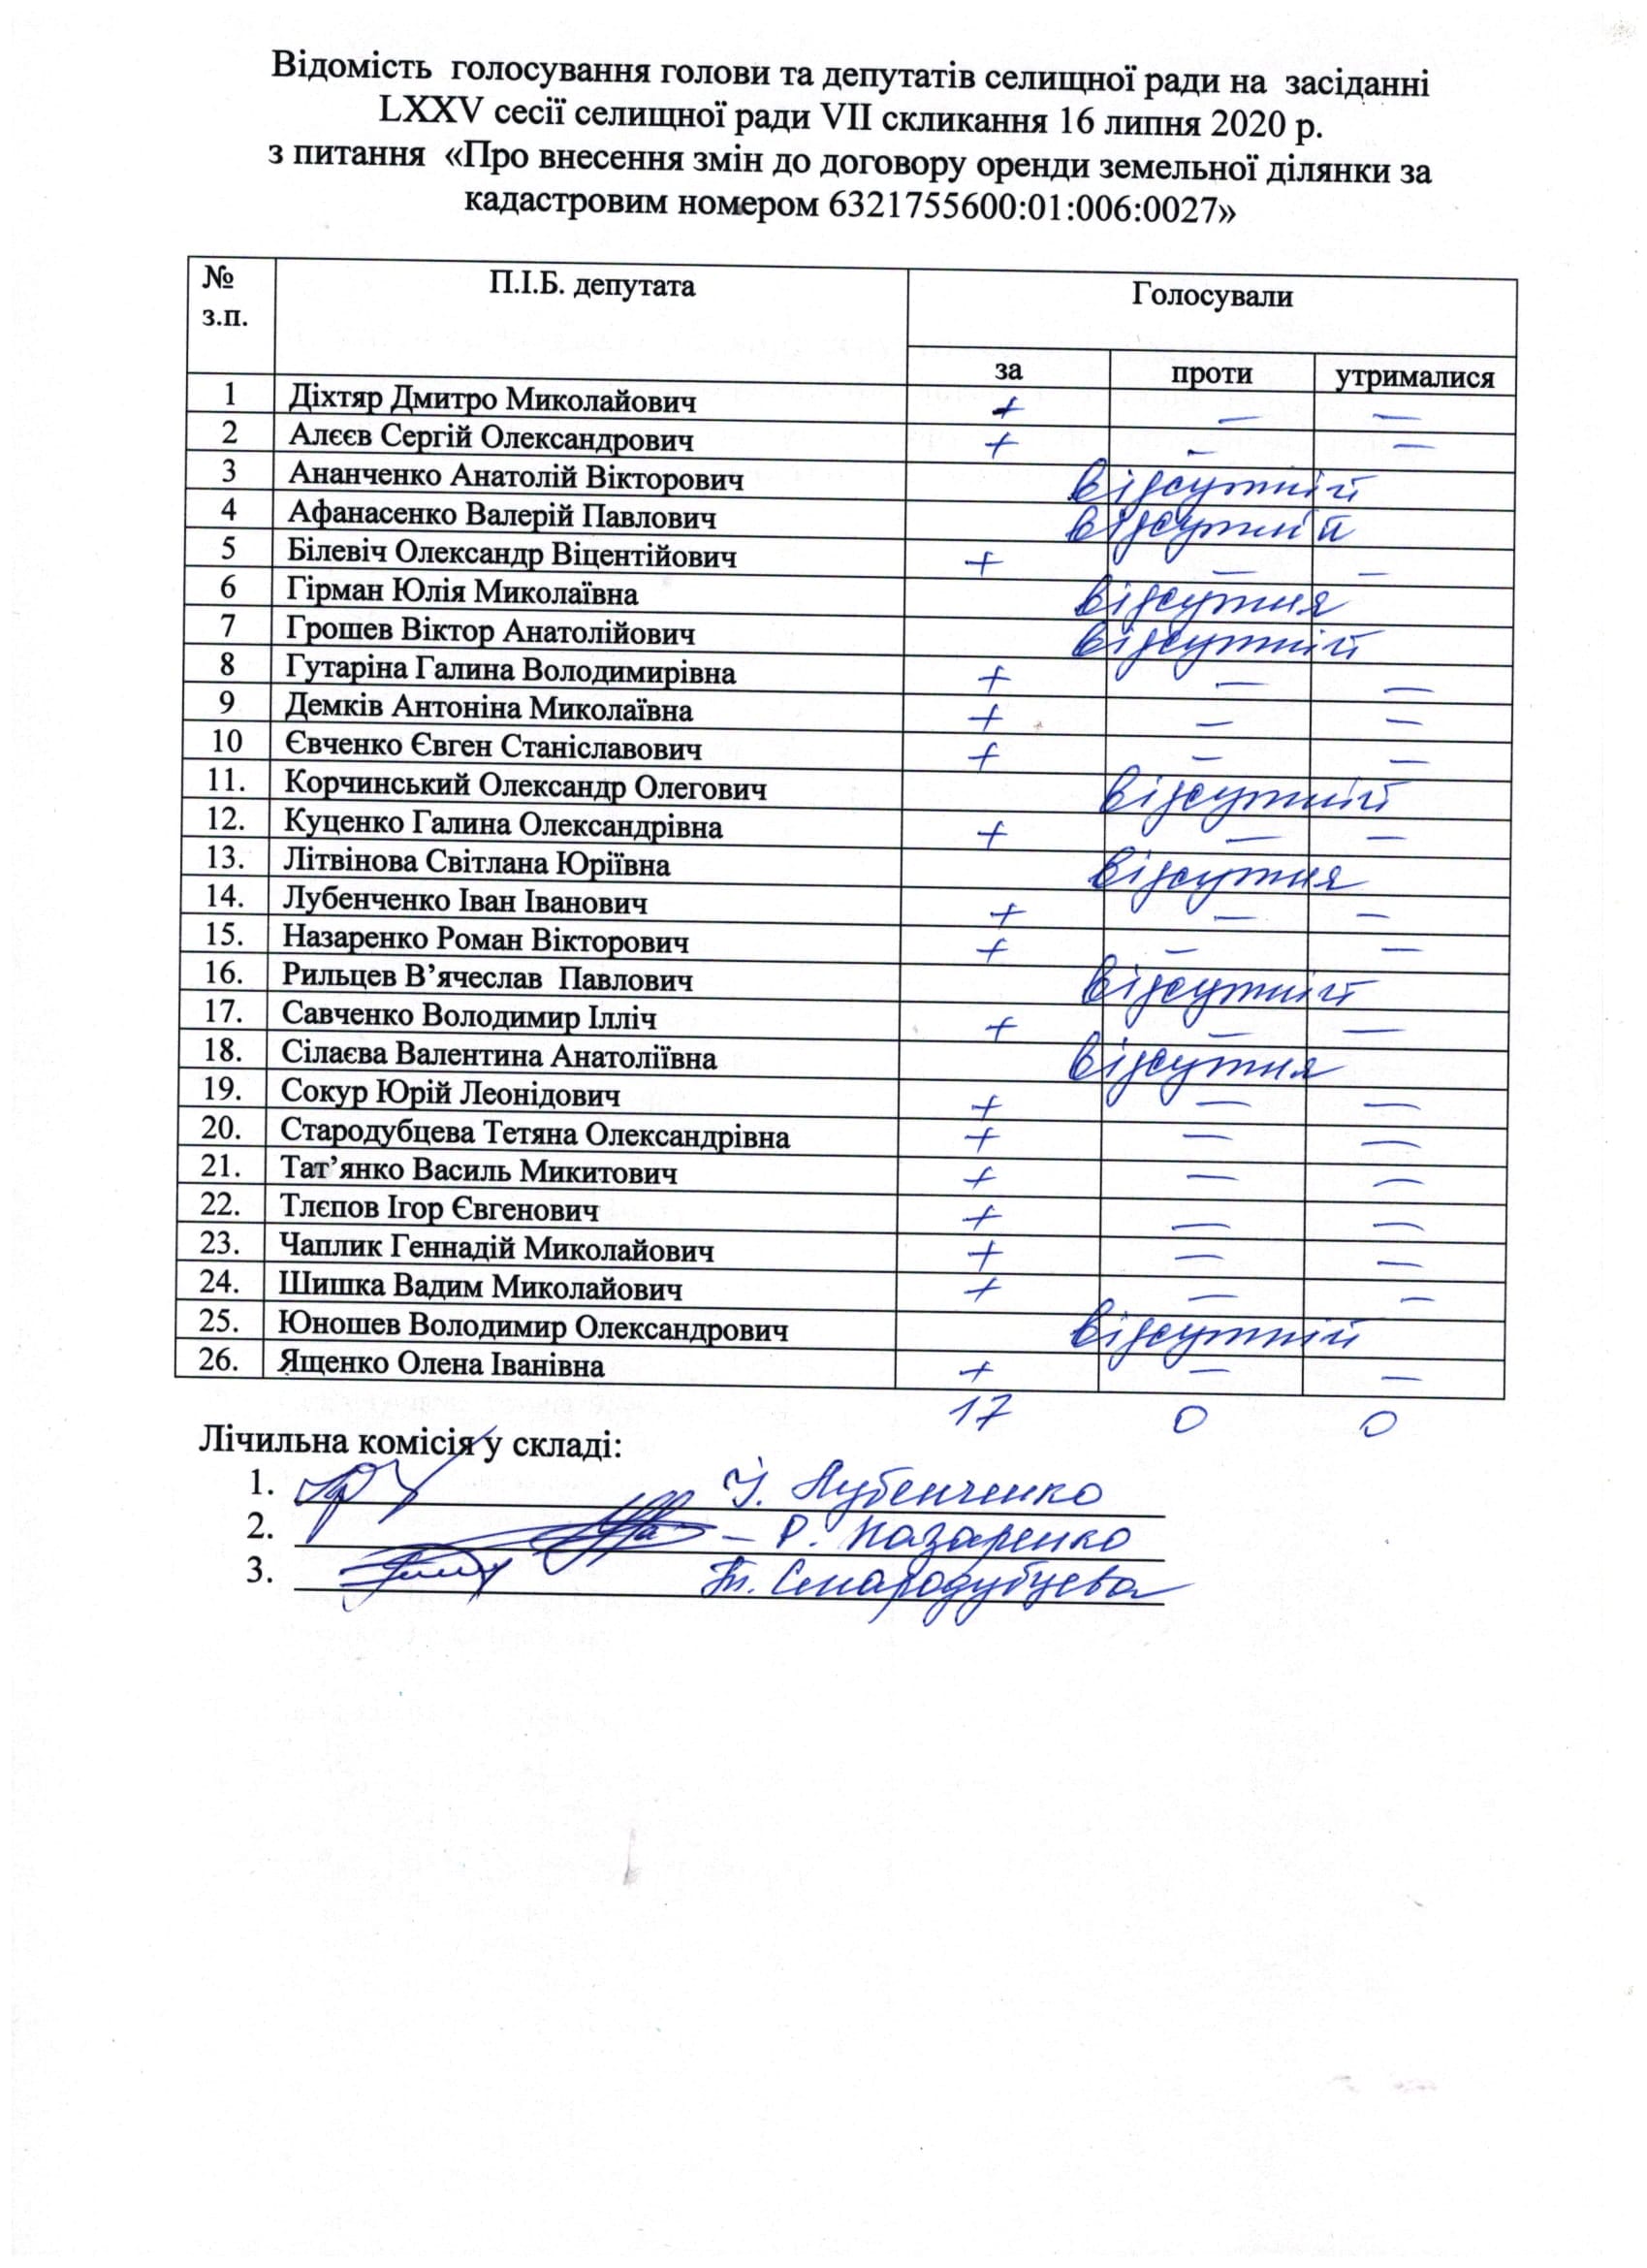 Відомість голосування голови та депутатів селищної ради на засіданні
LXXV сесії селищної ради VII скликання 16 липня 2020 р.
з питання «Про внесення змін до договору оренди земельної ділянки за
кадастровим номером 6321755600:01:006:0027»
№ з.п. П.І.Б. депутата Голосували
за проти утрималися
1 Діхтяр Дмитро Миколайович + — —
2 Алєєв Сергій Олександрович + — —
3 Ананченко Анатолій Вікторович відсутній
4 Афанасенко Валерій Павлович відсутній
5 Білевіч Олександр Віцентійович + — —
6 Гірман Юлія Миколаївна відсутня
7 Грошев Віктор Анатолійович відсутній
8 Гутаріна Галина Володимирівна + — —
9 Демків Антоніна Миколаївна + — —
10 Євченко Євген Станіславович + — —
11. Корчинський Олександр Олегович відсутній
12. Куценко Галина Олександрівна + — —
13. Літвінова Світлана Юріївна відсутня
14. Лубенченко Іван Іванович + — —
15. Назаренко Роман Вікторович + — —
16. Рильцев В’ячеслав Павлович відсутній
17. Савченко Володимир Ілліч + — —
18. Сілаєва Валентина Анатоліївна відсутня
19. Сокур Юрій Леонідович + — —
20. Стародубцева Тетяна Олександрівна + — —
21. Тат’янко Василь Микитович + — —
22. Тлєпов Ігор Євгенович + — —
23. Чаплик Геннадій Миколайович + — —
24. Шишка Вадим Миколайович + — —
25. Юношев Володимир Олександрович відсутній
26. Ященко Олена Іванівна + — —
17 0 0
Лічильна комісія у складі:
1. І. Лубенченко
2. — Р. Назаренко
3. Т. Стародубцева